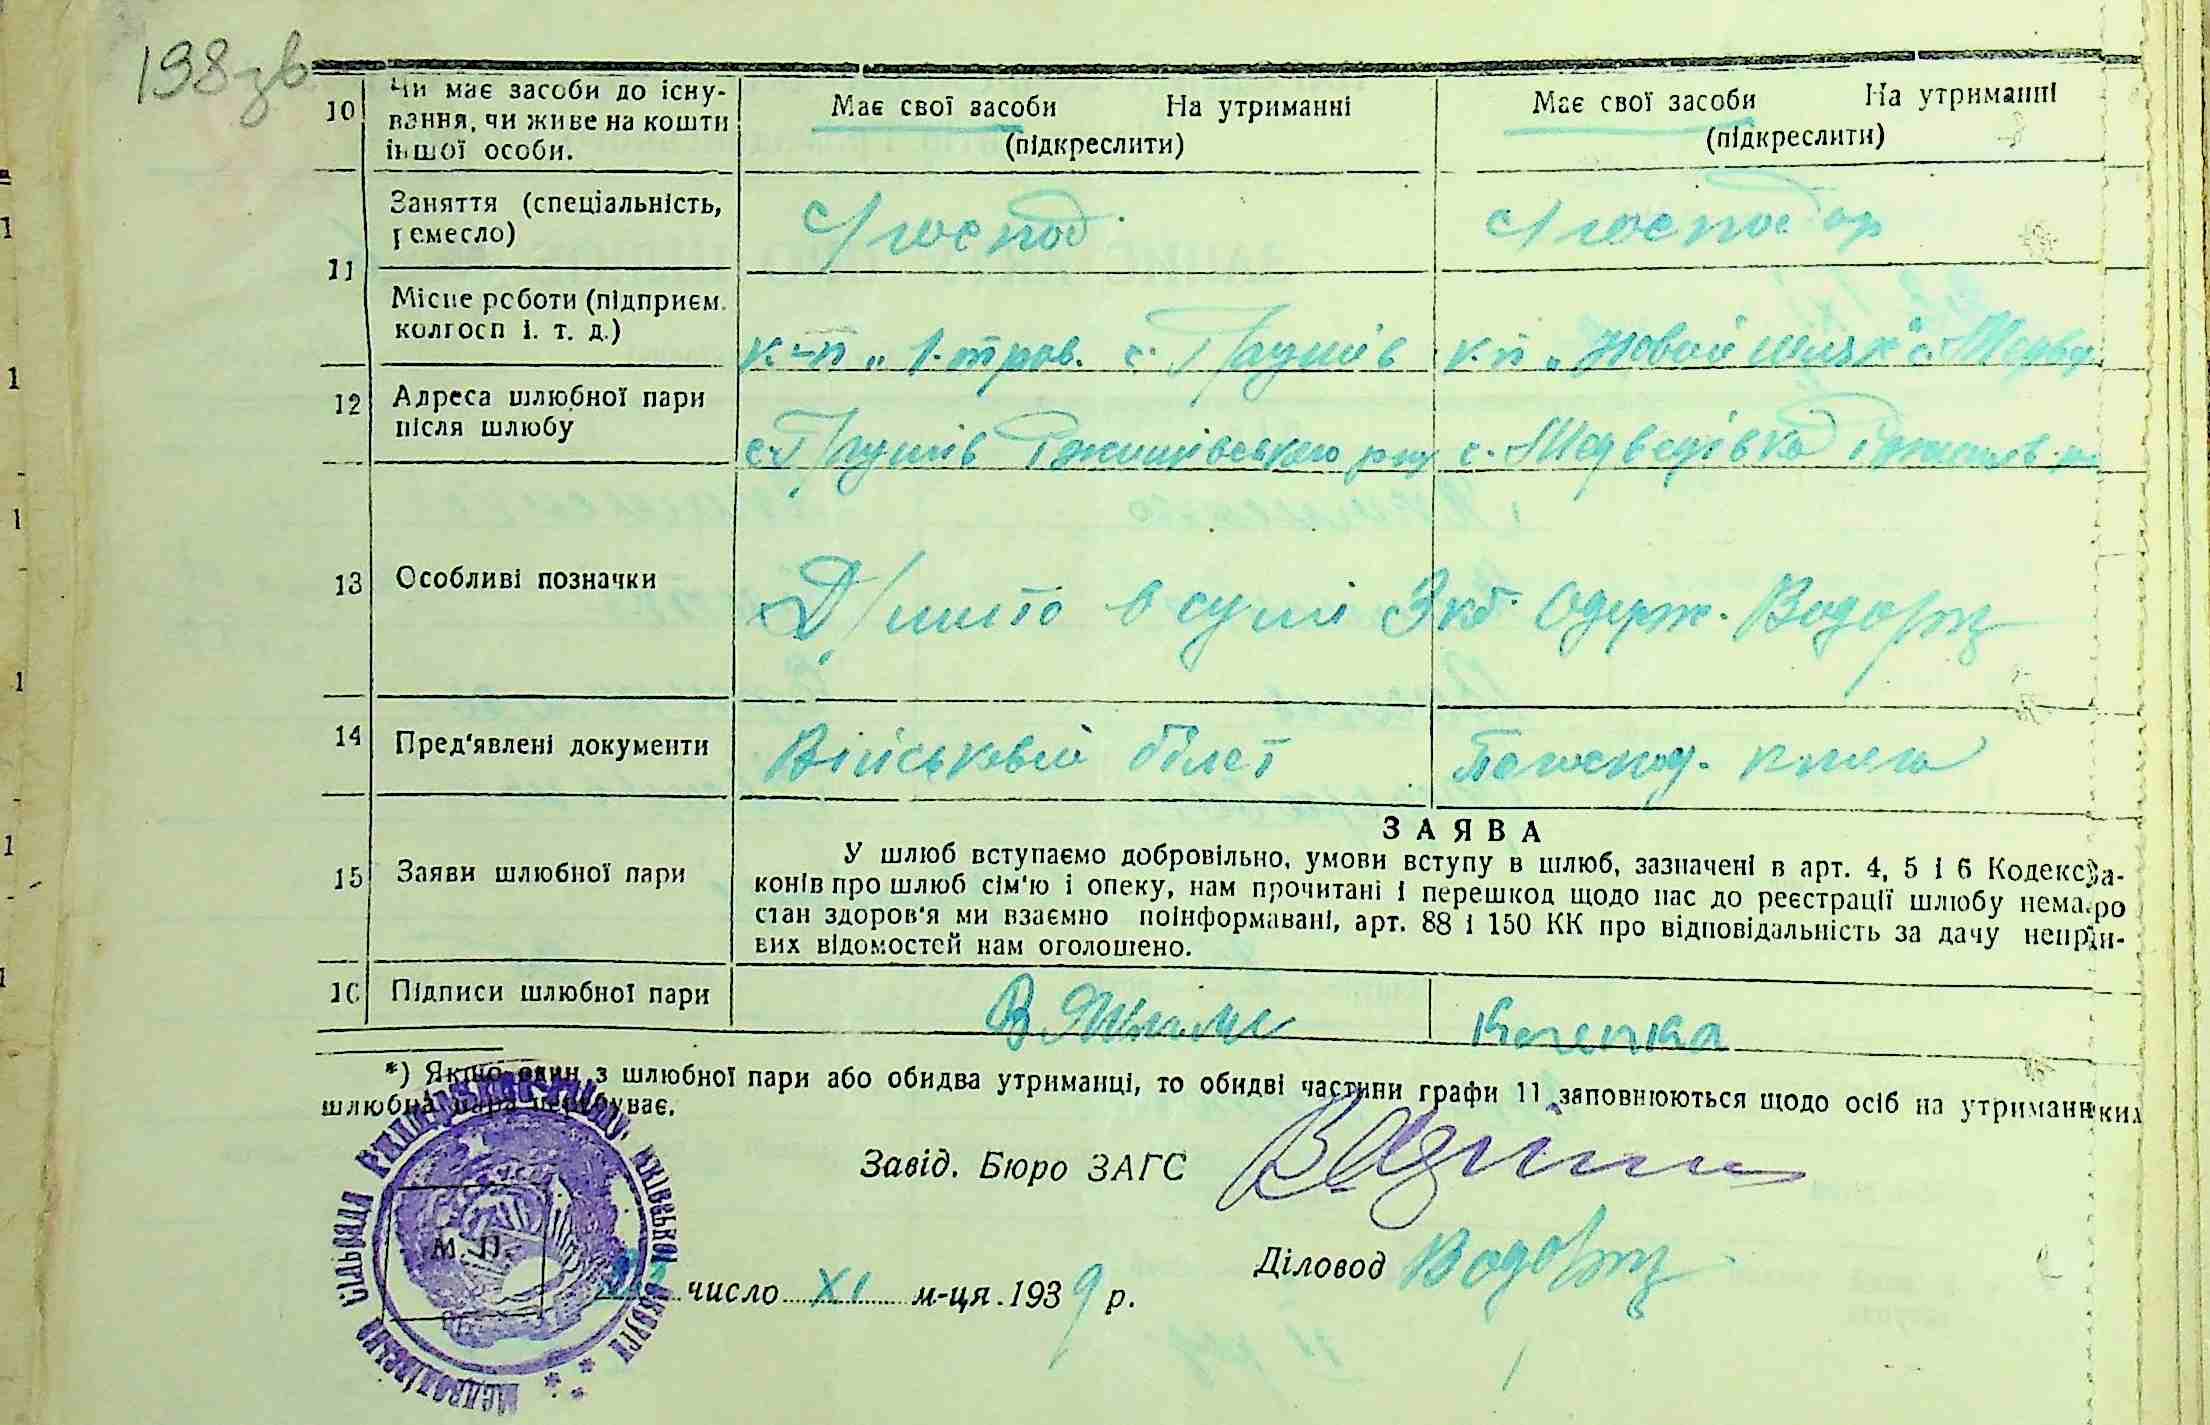 198зв
10 Чи має засоби до існу-
вання, чи живе на кошти
іншої особи.
Має свої засоби На утриманні
(підкреслити)
Має свої засоби На утриманні
(підкреслити)
11 Заняття (спеціальність,
ремесло)
с/господ
с/господар
Місце роботи (підприєм.
колгосп і. т. д.)
к-п „1 трав. с. Грушів
к-п „Новий шлях" с. Медвед
12 Адреса шлюбної пари
після шлюбу
с. Грушів Ржищівського р-ну
с. Медведівка Ржищів. р-ну
13 Особливі позначки
Д/мито в сумі 3 кб. Одерж.
14 Пред'явлені документи
Військовий білет
книга
15 Заяви шлюбної пари
ЗАЯВА
У шлюб вступаємо добровільно, умови вступу в шлюб, зазначені в арт. 4, 5 і 6 Кодекс за-
конів про шлюб сім'ю і опеку, нам прочитані і перешкод щодо нас до реєстрації шлюбу нема. ро
стан здоров'я ми взаємно поінформавані, арт. 88 і 150 КК про відповідальність за дачу неправ-
вих відомостей нам оголошено.
16 Підписи шлюбної пари
*) Якщо один з шлюбної пари або обидва утриманці, то обидві частини графи 11 заповнюються щодо осіб на утриманн ких
шлюбна пара перебуває.
Завід. Бюро ЗАГС
М. П.
Діловод
число XI м-ця 1939 р.